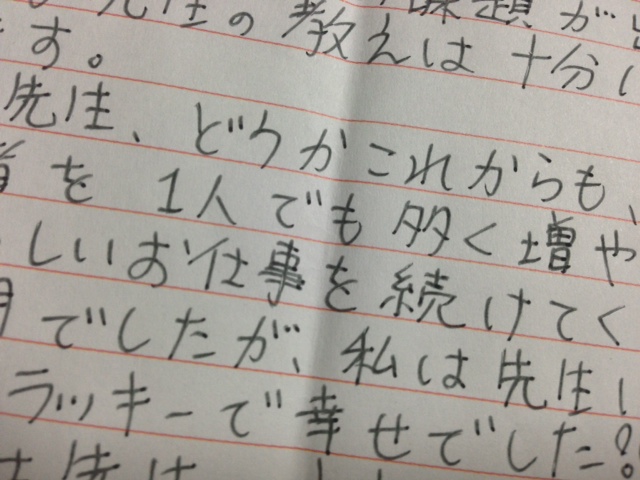 先生の教えは十分
す。
先生、どうかこれからも、
を1人でも多く増や
しいお仕事を続けてく
でしたが、私は先生
ラッキーで幸せでした!